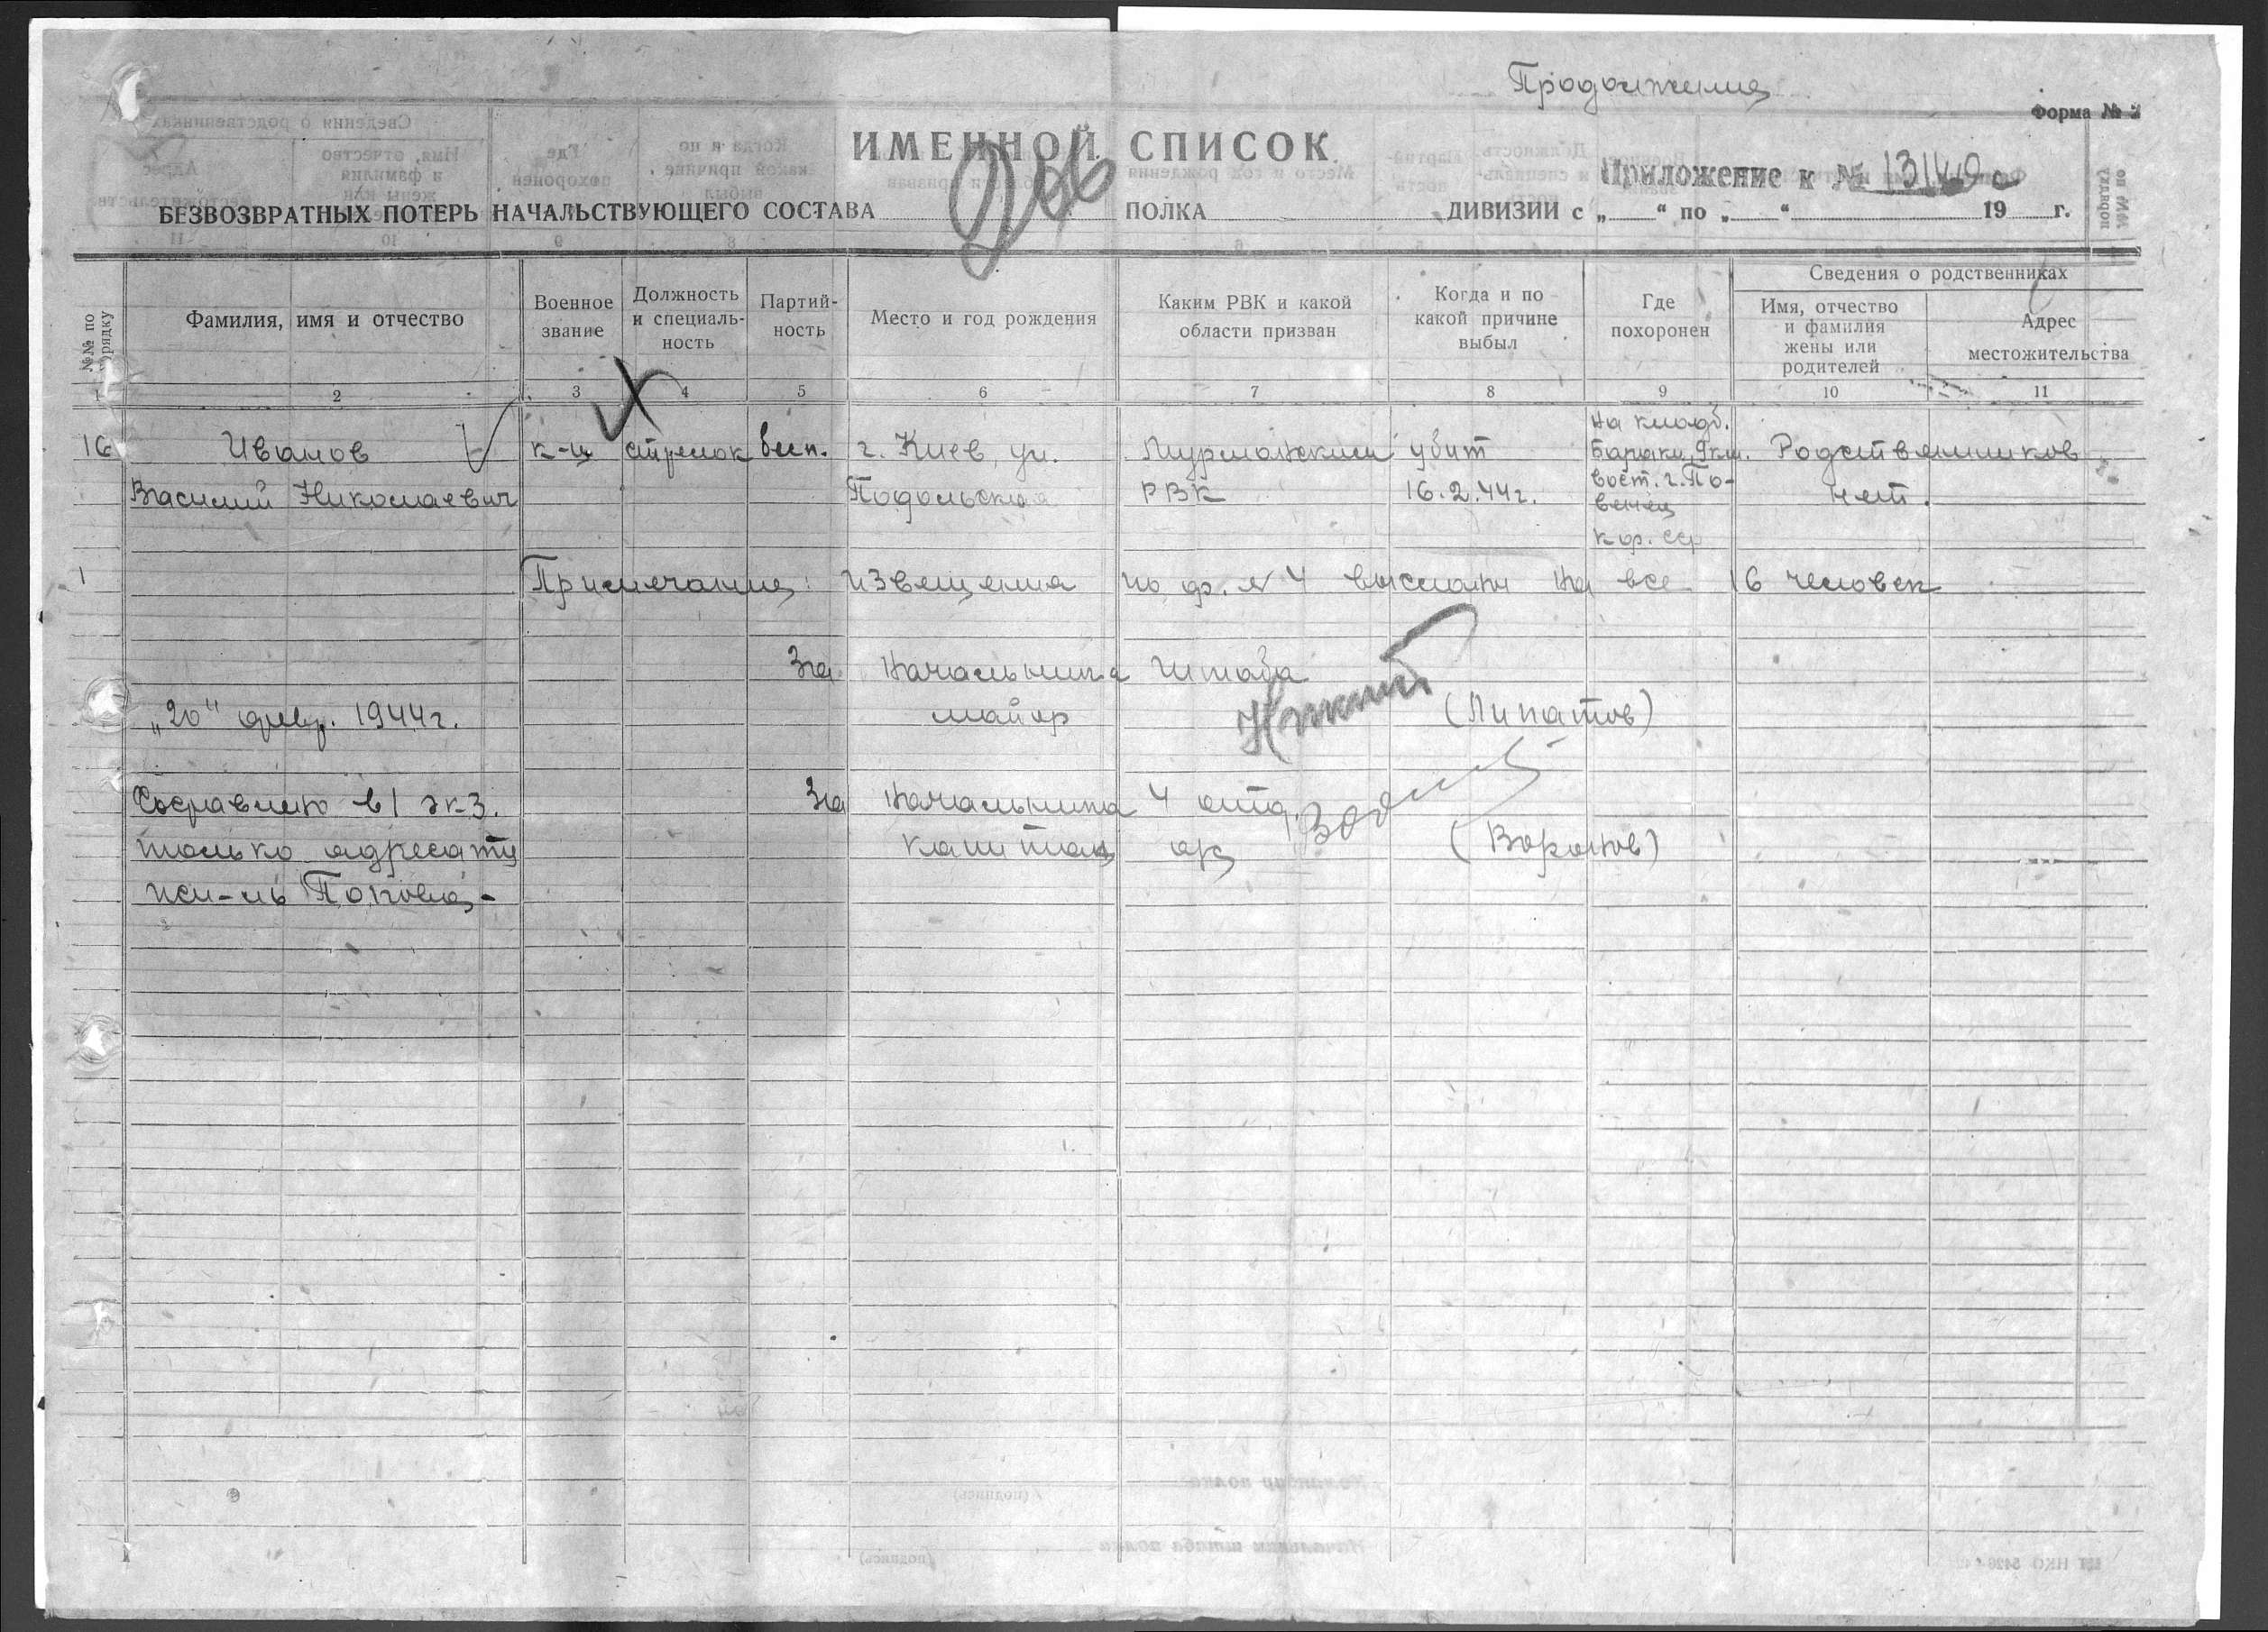 Продолжение
Форма № 2
ИМЕННОЙ СПИСОК
Приложение к №
БЕЗВОЗВРАТНЫХ ПОТЕРЬ НАЧАЛЬСТВУЮЩЕГО СОСТАВА ПОЛКА ДИВИЗИИ с „ “ по „ “ 19 г.
№№ по порядку
Фамилия, имя и отчество
Военное
звание
Должность
и специаль-
ность
Партий-
ность
Место и год рождения
Каким РВК и какой
области призван
Когда и по
какой причине
выбыл
Где
похоронен
Сведения о родственниках
Имя, отчество
и фамилия
жены или
родителей
Адрес
местожительства
1 2 3 4 5 6 7 8 9 10 11
16
Иванов
Василий Николаевич
к-ц
стрелок
бесп.
г. Киев, ул.
Подольская
Мурманским
РВК
убит
16.2.44г.
на кладб.
Бараки, 9км.
вост. г. По-
венец
Кар. сср
Родственников
нет.
Примечание: извещения по ф. № 4 высланы на все 16 человек
За Начальника Штаба
„20“ февр. 1944г. майор (Липатов)
в 1 экз. За Начальника 4 отд.
только адресату капитан а/с (Воронов)
исп-ль Попова-